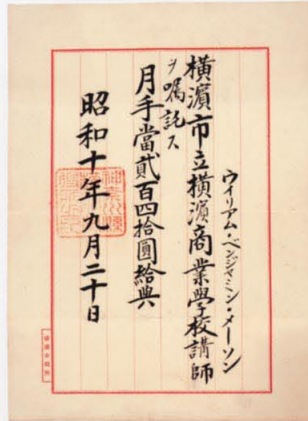 ウイリアム・ベンジャミン・メーソン
横濱市立横濱商業學校講師
ヲ嘱託ス
月手當貳百四拾圓給與
昭和十年九月二十日